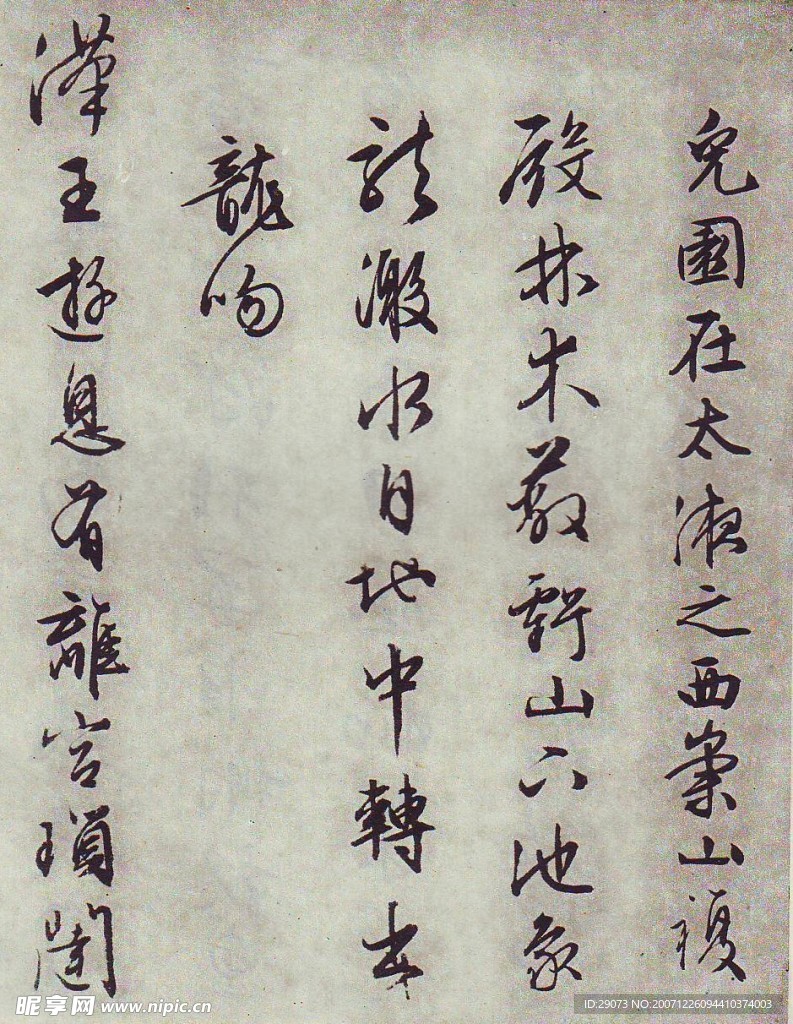 兔園在太液之西崇山複
殿林木蔽虧山下池象
龍激水自地中轉出
龍吻
漢王遊息有離宮瑣闥
昵享网 www.nipic.cn
ID:29073 NO:20071226094410374003